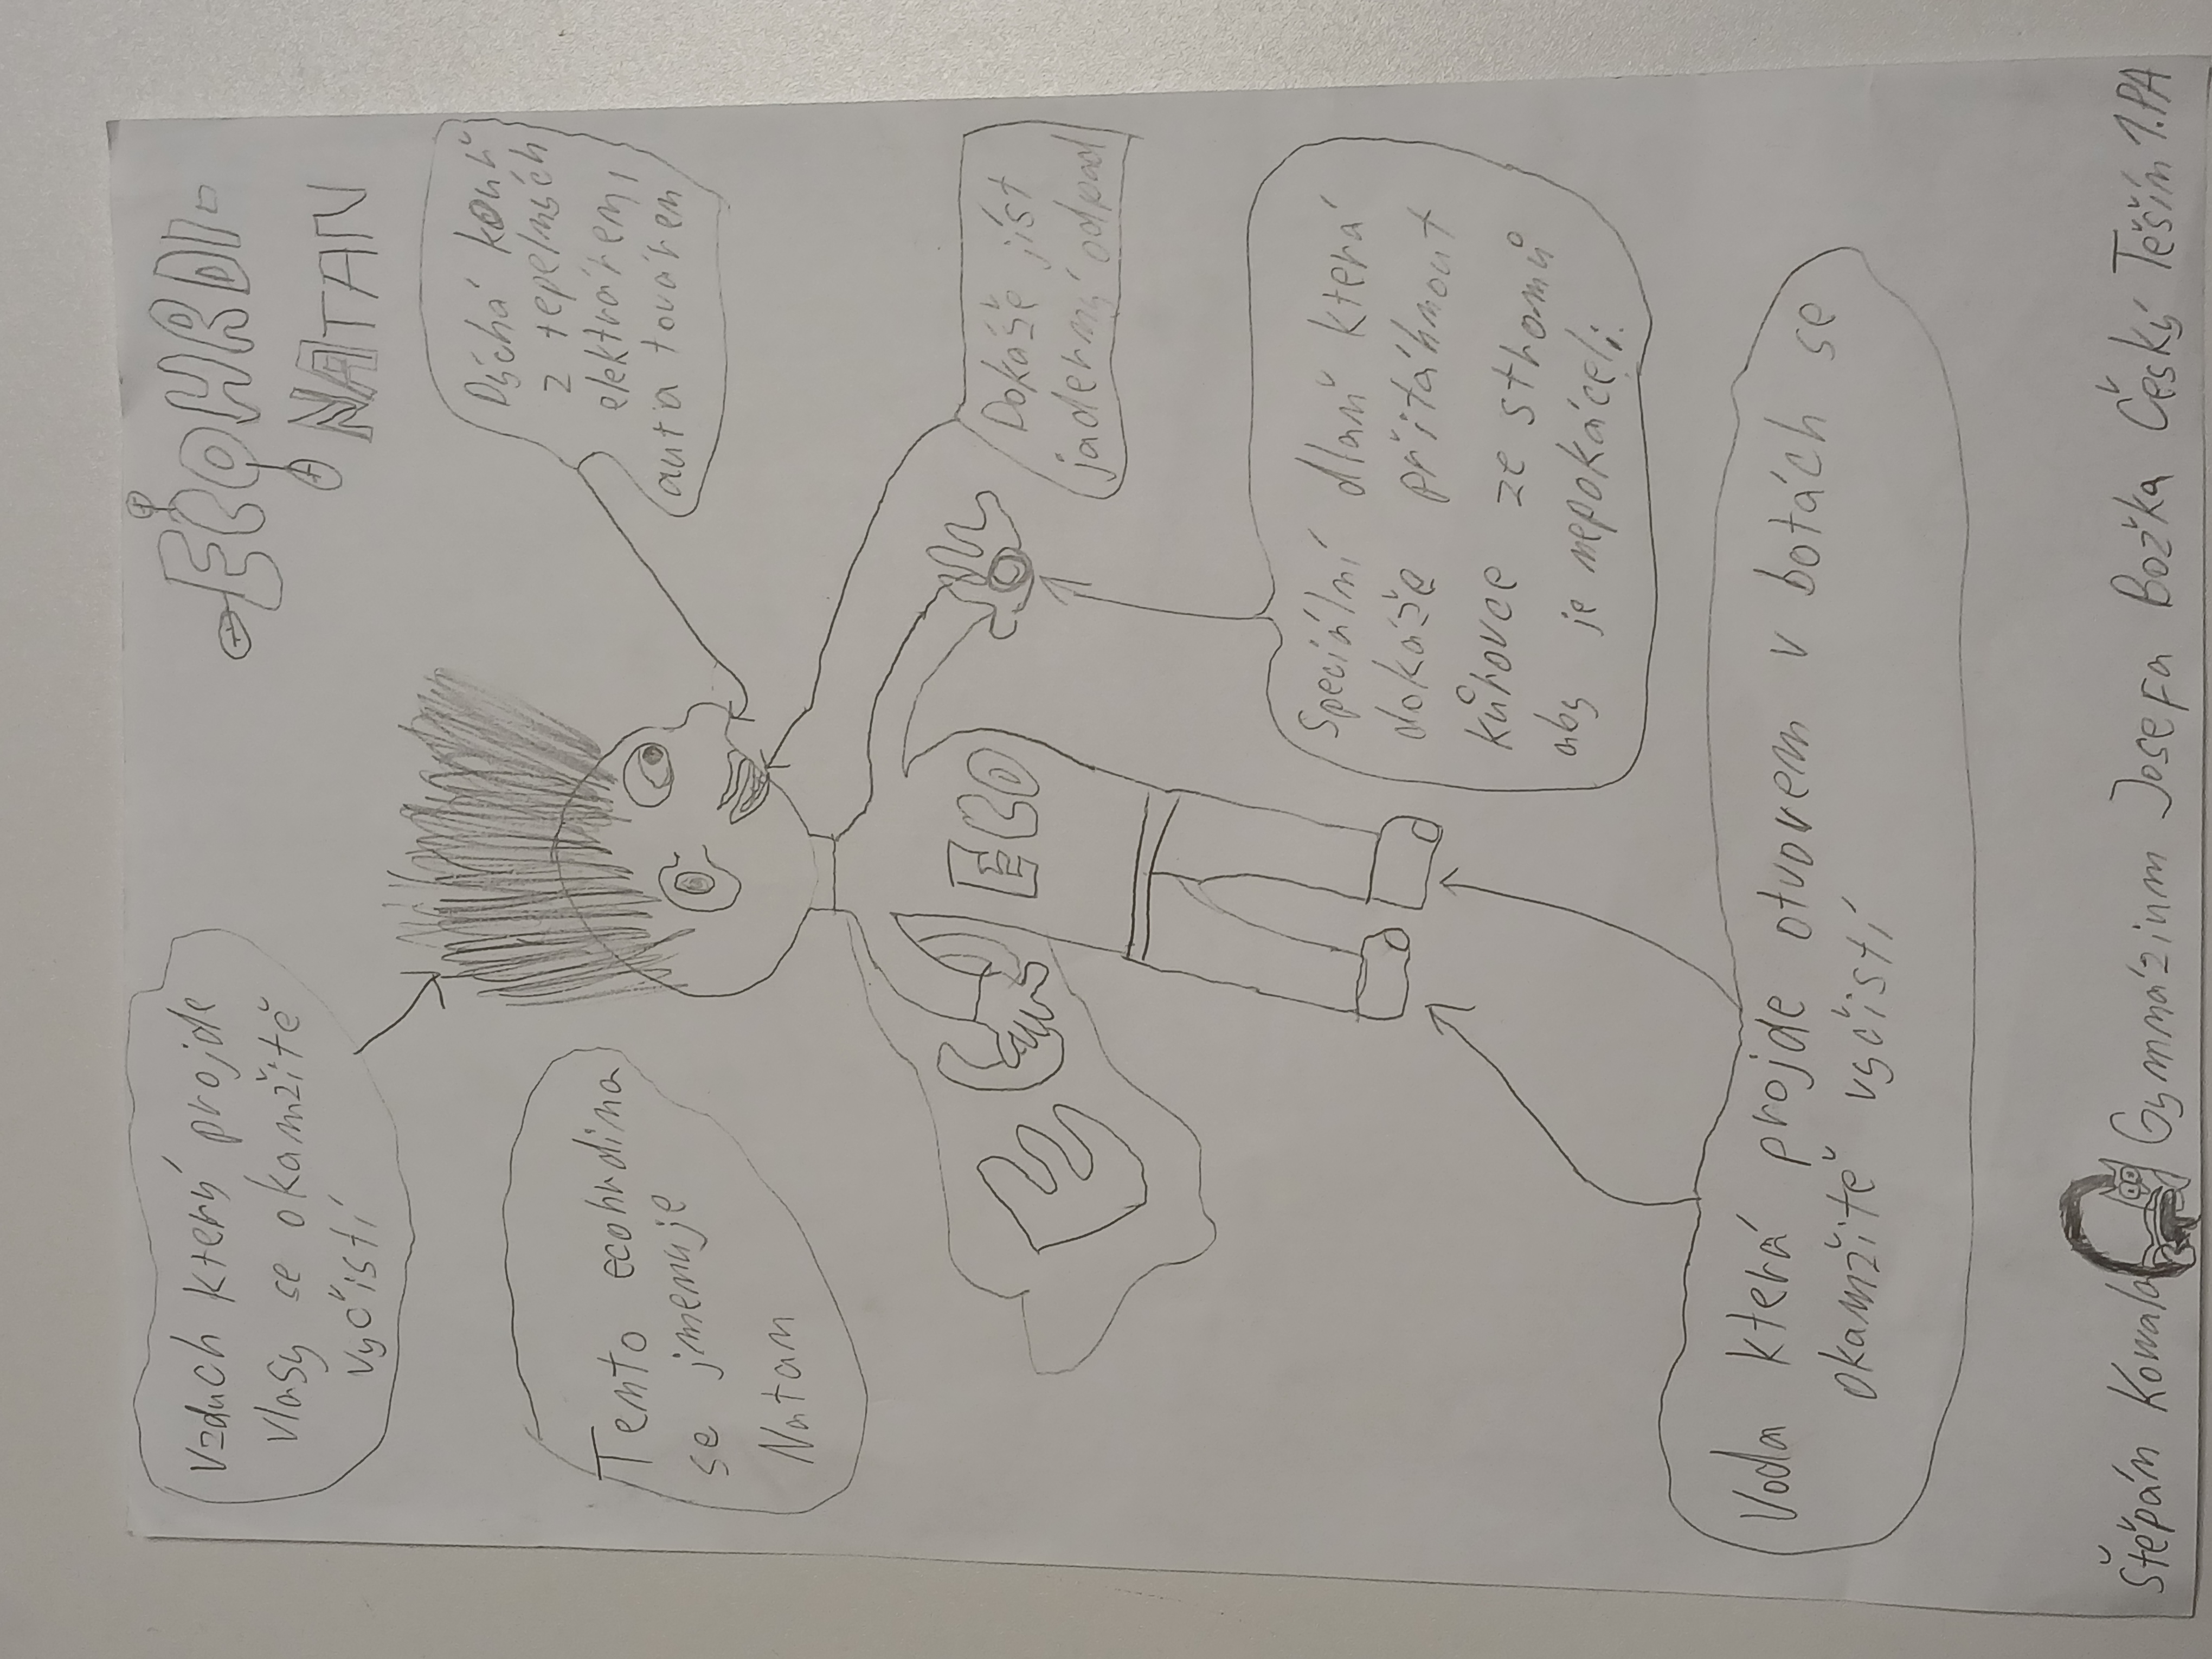 Vzduch který projde
vlasy se okamžitě
vyčistí
ECOHRDI-
NATAN
Dýchá kouř
z tepelných
elektráren,
aut a továren
Tento ecohrdina
se jmenuje
Natan
ECO
E
Dokáže jíst
jaderný odpad
Speciální dlaň která
dokáže přitáhnout
kůrovce ze stromů
aby je nepokáceli.
Voda která projde otvorem v botách se
okamžitě vyčistí
Štěpán Kowala Gymnázium Josefa Božka Český Těšín 1.PA